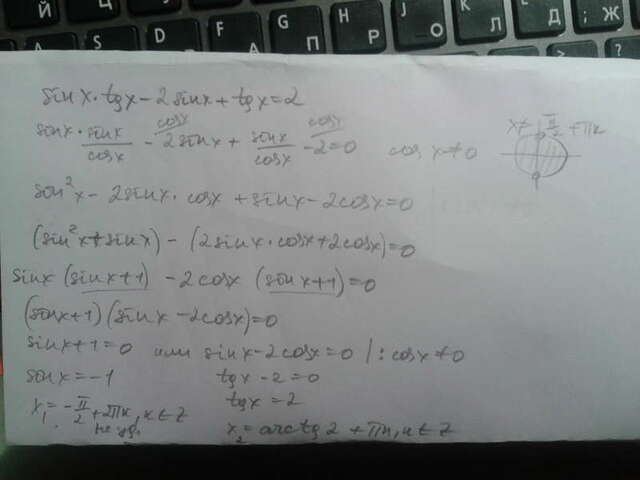 Й Ц К
A S D F G H J K L ; Ж
П Р О Л Д
sin x · tg x - 2 sin x + tg x = 2
sin x · sin x / cos x - 2 sin x + sin x / cos x - 2 = 0 cos x ≠ 0 x ≠ π/2 + πk
cos x cos x
sin²x - 2 sin x · cos x + sin x - 2 cos x = 0
(sin²x + sin x) - (2 sin x · cos x + 2 cos x) = 0
sin x (sin x + 1) - 2 cos x (sin x + 1) = 0
(sin x + 1)(sin x - 2 cos x) = 0
sin x + 1 = 0 или sin x - 2 cos x = 0 | : cos x ≠ 0
sin x = -1 tg x - 2 = 0
x₁ = -π/2 + 2πk, k ∈ Z tg x = 2
не уд. x₂ = arctg 2 + πn, n ∈ Z